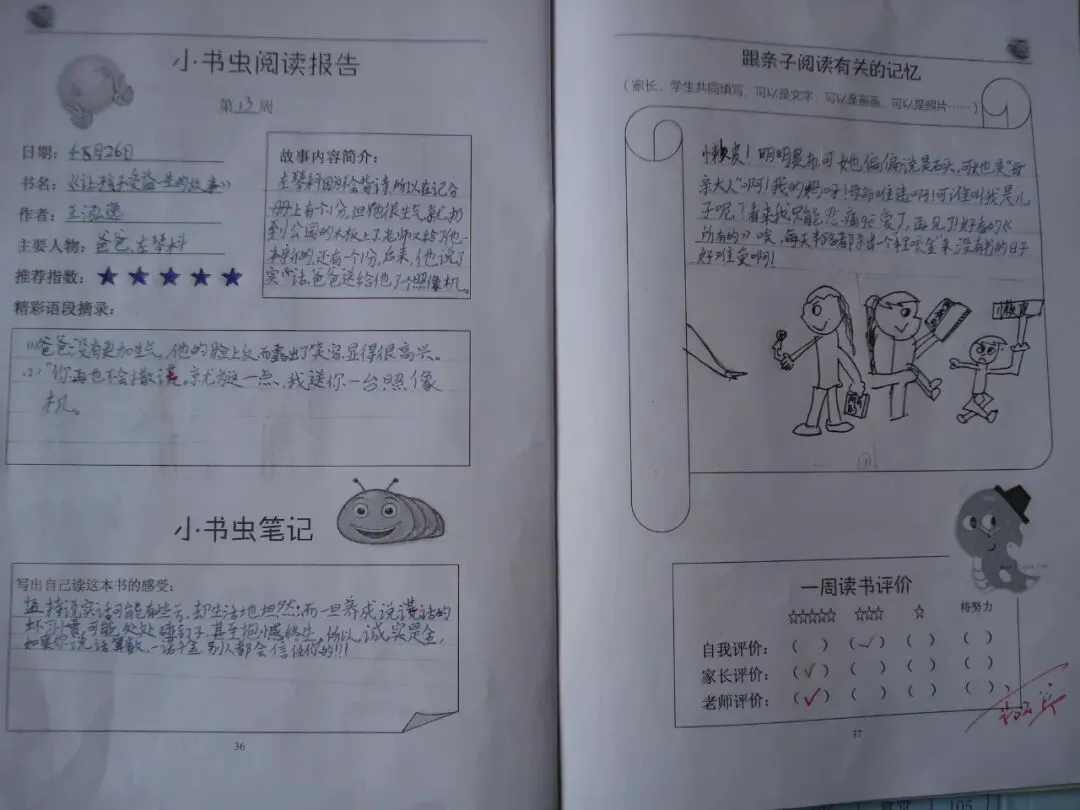 小书虫阅读报告
第13周
日期：4月26日
书名：《让孩子受益一生的故事》
作者：
主要人物：爸爸、左琴科
推荐指数：★★★★★
精彩语段摘录：
故事内容简介：
左琴科因为不会背诗，所以在记分
册上有个1分，但他很生气就扔
到公园的木板上了，老师又给了他一
本新的，还有一个1分，后来，他说了
实话，爸爸送给他了个照像机。
(1)爸爸没有更加生气，他的脸上反而露出了笑容，显得很高兴。
(2)“你再也不会撒谎。就为这一点，我送你一台照像
机。
小书虫笔记
写出自己读这本书的感受：
坚持说实话可能有些亏，却生活地坦然；而一旦养成说谎话的
坏习惯，可能处处碰钉子，甚至抱憾终生。所以，诚实是金，
如果你说话算数，一诺千金，别人都会信任你的!!!
36
跟亲子阅读有关的记忆
（家长、学生共同填写，可以是文字，可以是画画，可以是照片……）
小赖皮！明明是布，可她偏偏说是石头，可她是“母
亲大人”啊！我的妈呀！母命难违啊！可谁叫我是儿
子呢？看来我只能忍痛割爱了，再见了！好看的《
所有的》唉，每天
好难受啊！
小赖皮
一周读书评价
☆☆☆☆☆ ☆☆☆ ☆ 待努力
自我评价：（ ）（✓）（ ）（ ）
家长评价：（✓）（ ）（ ）（ ）
老师评价：（✓）（ ）（ ）（ ）
37